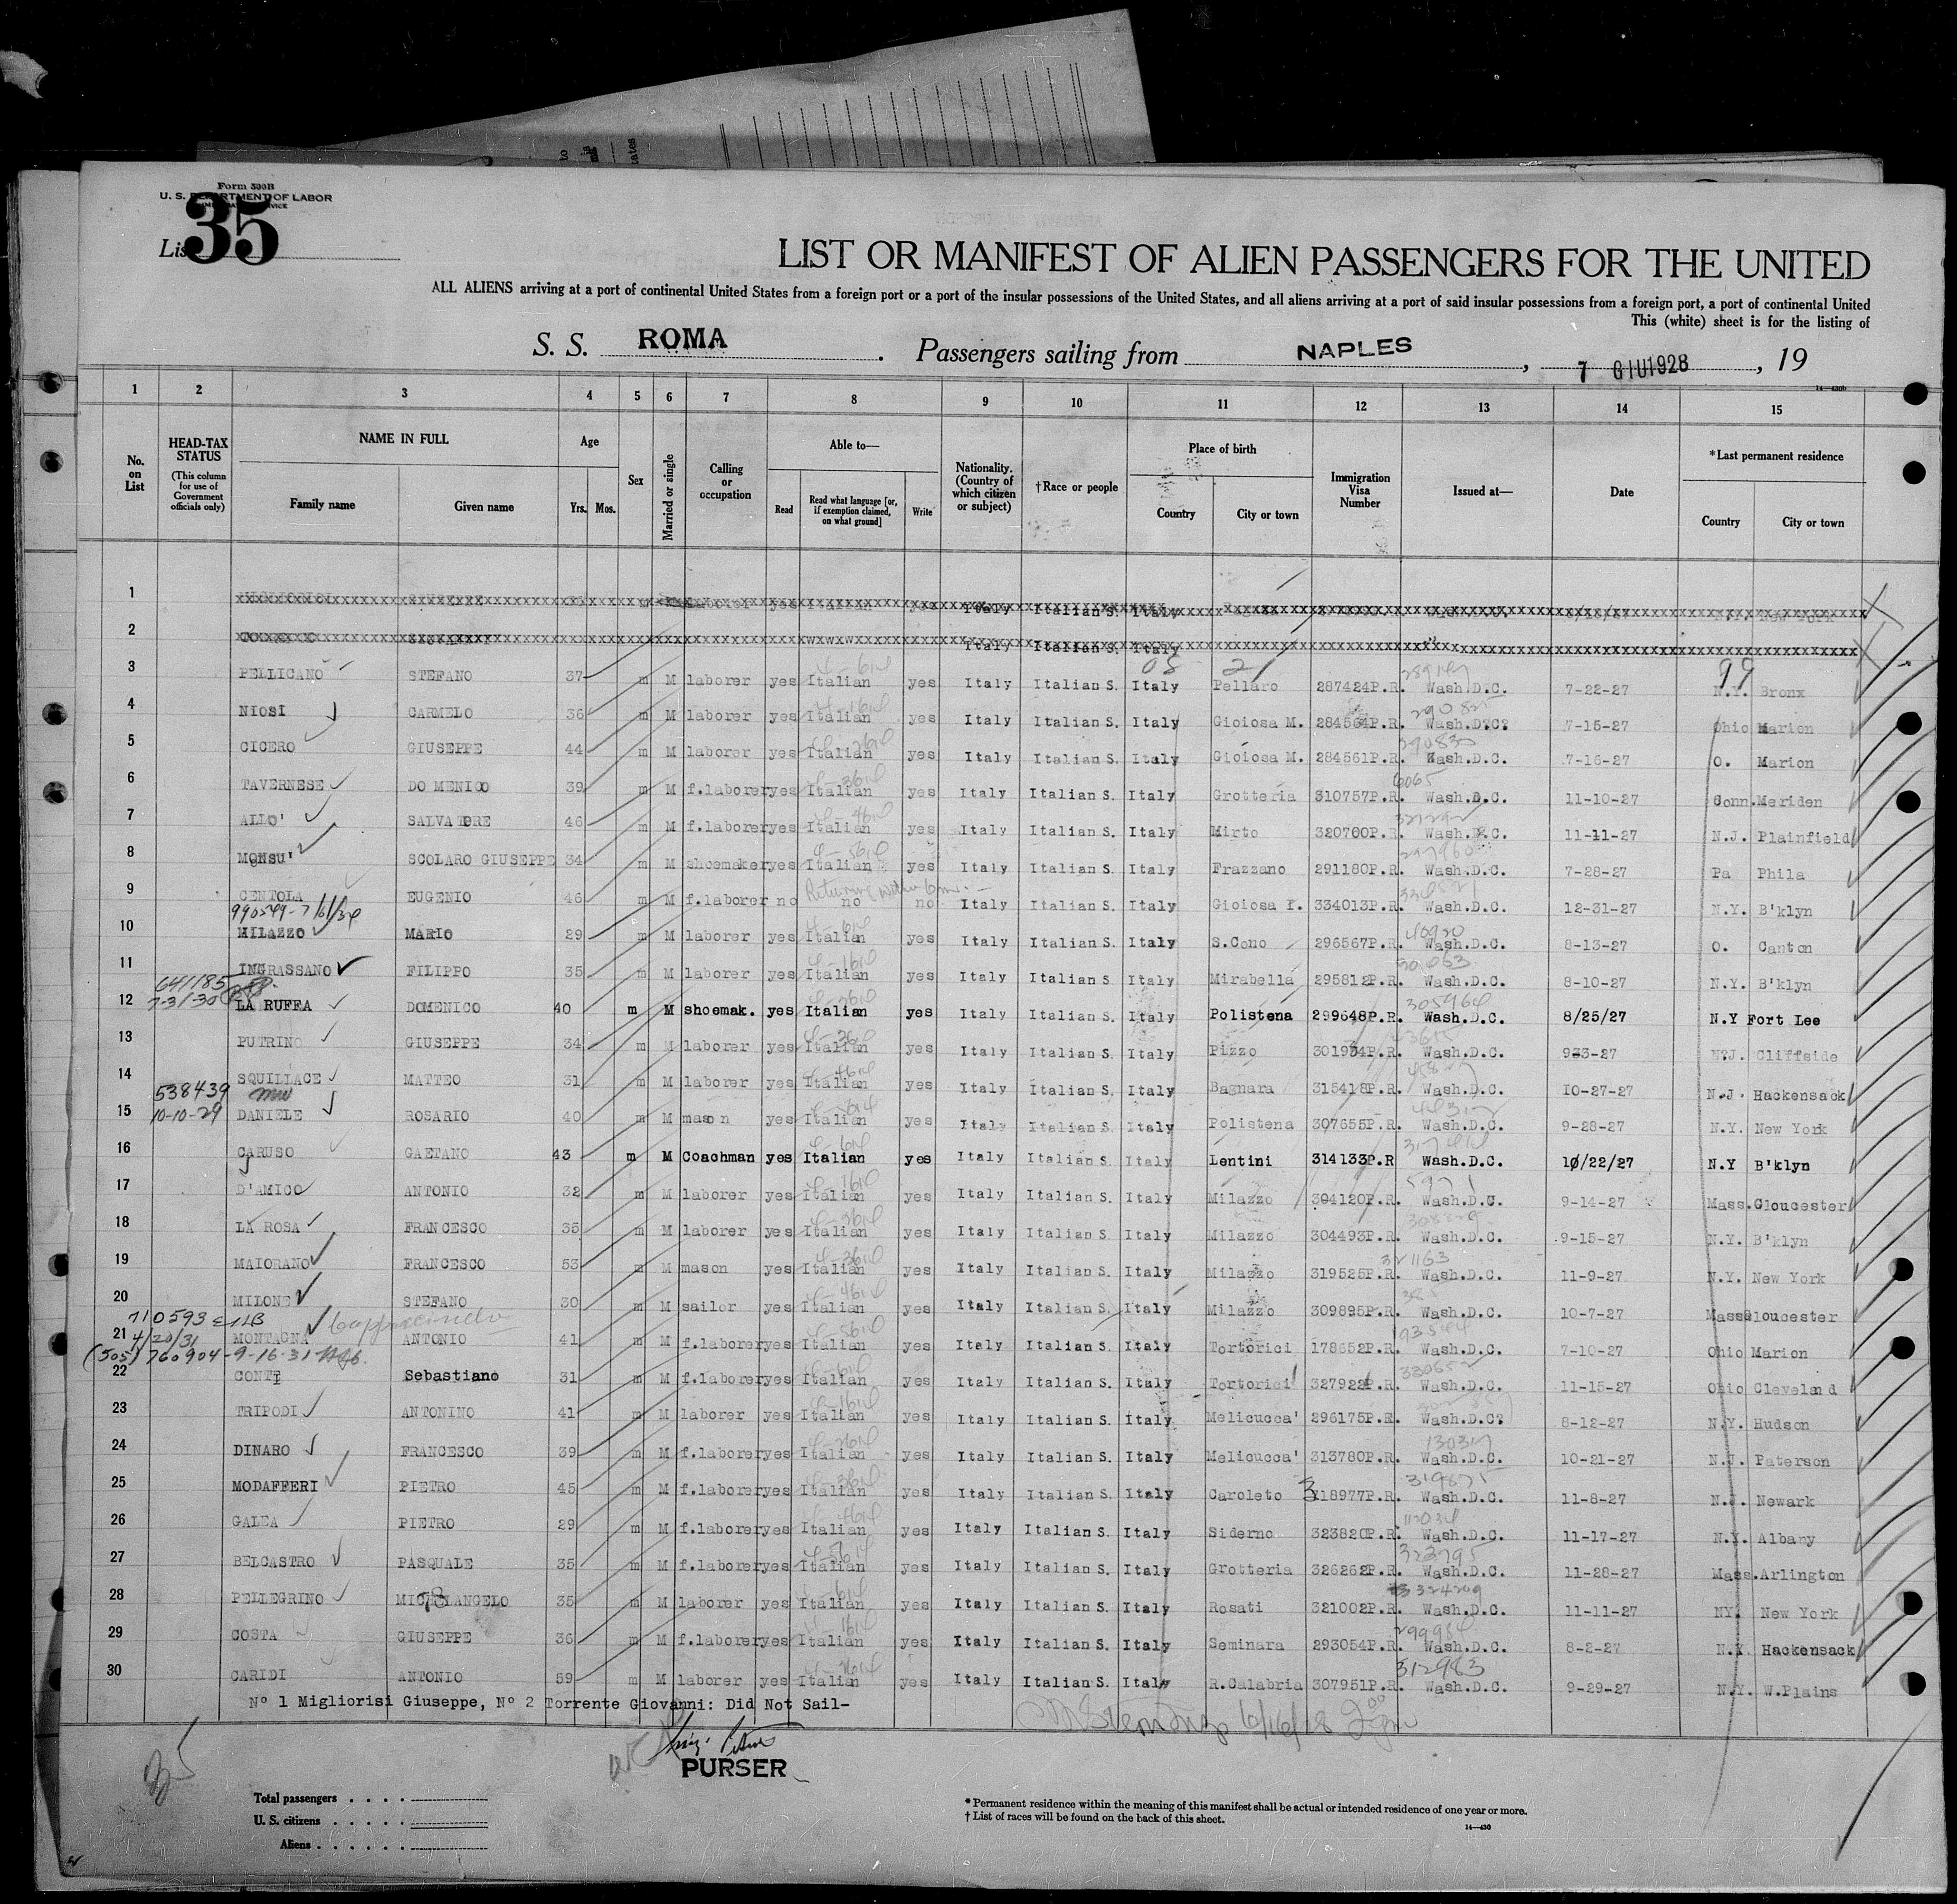 Form 500B
U. S. DEPARTMENT OF LABOR
35
LIST OR MANIFEST OF ALIEN PASSENGERS FOR THE UNITED
ALL ALIENS arriving at a port of continental United States from a foreign port or a port of the insular possessions of the United States, and all aliens arriving at a port of said insular possessions from a foreign port, a port of continental United
This (white) sheet is for the listing of
S. S. ROMA . Passengers sailing from NAPLES , 7 GIU 1928 , 19
14—430b
1 2 3 4 5 6 7 8 9 10 11 12 13 14 15
No. on List HEAD-TAX STATUS (This column for use of Government officials only) NAME IN FULL Family name Given name Age Yrs. Mos. Sex Married or single Calling or occupation Able to— Read Read what language [or, if exemption claimed, on what ground] Write Nationality. (Country of which citizen or subject) †Race or people Place of birth Country City or town Immigration Visa Number Issued at— Date *Last permanent residence Country City or town
1 Italy Italian S. Italy
2 Italy Italian S. Italy
3 PELLICANO STEFANO 37 m M laborer yes Italian yes Italy Italian S. Italy Pellaro 287424P.R. Wash.D.C. 7-22-27 N.Y. Bronx
4 NIOSI CARMELO 36 m M laborer yes Italian yes Italy Italian S. Italy Gioiosa M. 284564P.R. Wash.D?C? 7-15-27 Ohio Marion
5 CICERO GIUSEPPE 44 m M laborer yes Italian yes Italy Italian S. Italy Gioiosa M. 284561P.R. Wash.D.C. 7-16-27 O. Marion
6 TAVERNESE DOMENICO 39 m M f.laborer yes Italian yes Italy Italian S. Italy Grotteria 310757P.R. Wash.D.C. 11-10-27 Conn. Meriden
7 ALLO' SALVATORE 46 m M f.laborer yes Italian yes Italy Italian S. Italy Mirto 320700P.R. Wash.D.C. 11-11-27 N.J. Plainfield
8 MONSU' SCOLARO GIUSEPPE 34 m M shoemaker yes Italian yes Italy Italian S. Italy Frazzano 291180P.R. Wash.D.C. 7-28-27 Pa Phila
9 CENTOLA EUGENIO 46 m M f.laborer no no no Italy Italian S. Italy Gioiosa I. 334013P.R. Wash.D.C. 12-31-27 N.Y. B'klyn
10 MILAZZO MARIO 29 m M laborer yes Italian yes Italy Italian S. Italy S.Cono 296567P.R. Wash.D.C. 8-13-27 O. Canton
11 INGRASSANO FILIPPO 35 m M laborer yes Italian yes Italy Italian S. Italy Mirabella 295812P.R. Wash.D.C. 8-10-27 N.Y. B'klyn
641185
7-31-30
12 LA RUFFA DOMENICO 40 m M shoemak. yes Italian yes Italy Italian S. Italy Polistena 299648P.R. Wash.D.C. 8/25/27 N.Y Fort Lee
13 PUTRINO GIUSEPPE 34 m M laborer yes Italian yes Italy Italian S. Italy Pizzo 301934P.R. Wash.D.C. 9-3-27 N.J. Cliffside
14 SQUILLACE MATTEO 31 m M laborer yes Italian yes Italy Italian S. Italy Bagnara 315418P.R. Wash.D.C. 10-27-27 N.J. Hackensack
538439
10-10-29
15 DANIELE ROSARIO 40 m M mason yes Italian yes Italy Italian S. Italy Polistena 307655P.R. Wash.D.C. 9-28-27 N.Y. New York
16 CARUSO GAETANO 43 m M Coachman yes Italian yes Italy Italian S. Italy Lentini 314133P.R Wash.D.C. 10/22/27 N.Y B'klyn
17 D'AMICO ANTONIO 32 m M laborer yes Italian yes Italy Italian S. Italy Milazzo 304120P.R. Wash.D.C. 9-14-27 Mass. Gloucester
18 LA ROSA FRANCESCO 35 m M laborer yes Italian yes Italy Italian S. Italy Milazzo 304493P.R. Wash.D.C. 9-15-27 N.Y. B'klyn
19 MAIORANO FRANCESCO 53 m M mason yes Italian yes Italy Italian S. Italy Milazzo 319525P.R. Wash.D.C. 11-9-27 N.Y. New York
20 MILONE STEFANO 30 m M sailor yes Italian yes Italy Italian S. Italy Milazzo 309895P.R. Wash.D.C. 10-7-27 Mass Gloucester
710593
4/20/31
21 MONTAGNA ANTONIO 41 m M f.laborer yes Italian yes Italy Italian S. Italy Tortorici 178652P.R. Wash.D.C. 7-10-27 Ohio Marion
(505) 760904-9-16-31
22 CONTI Sebastiano 31 m M f.laborer yes Italian yes Italy Italian S. Italy Tortorici 327922P.R. Wash.D.C. 11-15-27 Ohio Cleveland
23 TRIPODI ANTONINO 41 m M laborer yes Italian yes Italy Italian S. Italy Melicucca' 296175P.R. Wash.D.C? 8-12-27 N.Y. Hudson
24 DINARO FRANCESCO 39 m M f.laborer yes Italian yes Italy Italian S. Italy Melicucca' 313780P.R. Wash.D.C. 10-21-27 N.J. Paterson
25 MODAFFERI PIETRO 45 m M f.laborer yes Italian yes Italy Italian S. Italy Caroleto 318977P.R. Wash.D.C. 11-8-27 N.J. Newark
26 GALEA PIETRO 29 m M f.laborer yes Italian yes Italy Italian S. Italy Siderno 323820P.R. Wash.D.C. 11-17-27 N.Y. Albany
27 BELCASTRO PASQUALE 35 m M f.laborer yes Italian yes Italy Italian S. Italy Grotteria 326262P.R. Wash.D.C. 11-28-27 Mass. Arlington
28 PELLEGRINO MICHELANGELO 35 m M laborer yes Italian yes Italy Italian S. Italy Rosati 321002P.R. Wash.D.C. 11-11-27 NY. New York
29 COSTA GIUSEPPE 36 m M f.laborer yes Italian yes Italy Italian S. Italy Seminara 293054P.R. Wash.D.C. 8-2-27 N.Y. Hackensack
30 CARIDI ANTONIO 59 m M laborer yes Italian yes Italy Italian S. Italy R.Calabria 307951P.R. Wash.D.C. 9-29-27 N.Y. W.Plains
Nº 1 Migliorisi Giuseppe, Nº 2 Torrente Giovanni: Did Not Sail-
6/16/28
PURSER
35
Total passengers
U. S. citizens
Aliens
* Permanent residence within the meaning of this manifest shall be actual or intended residence of one year or more.
† List of races will be found on the back of this sheet.
14—430